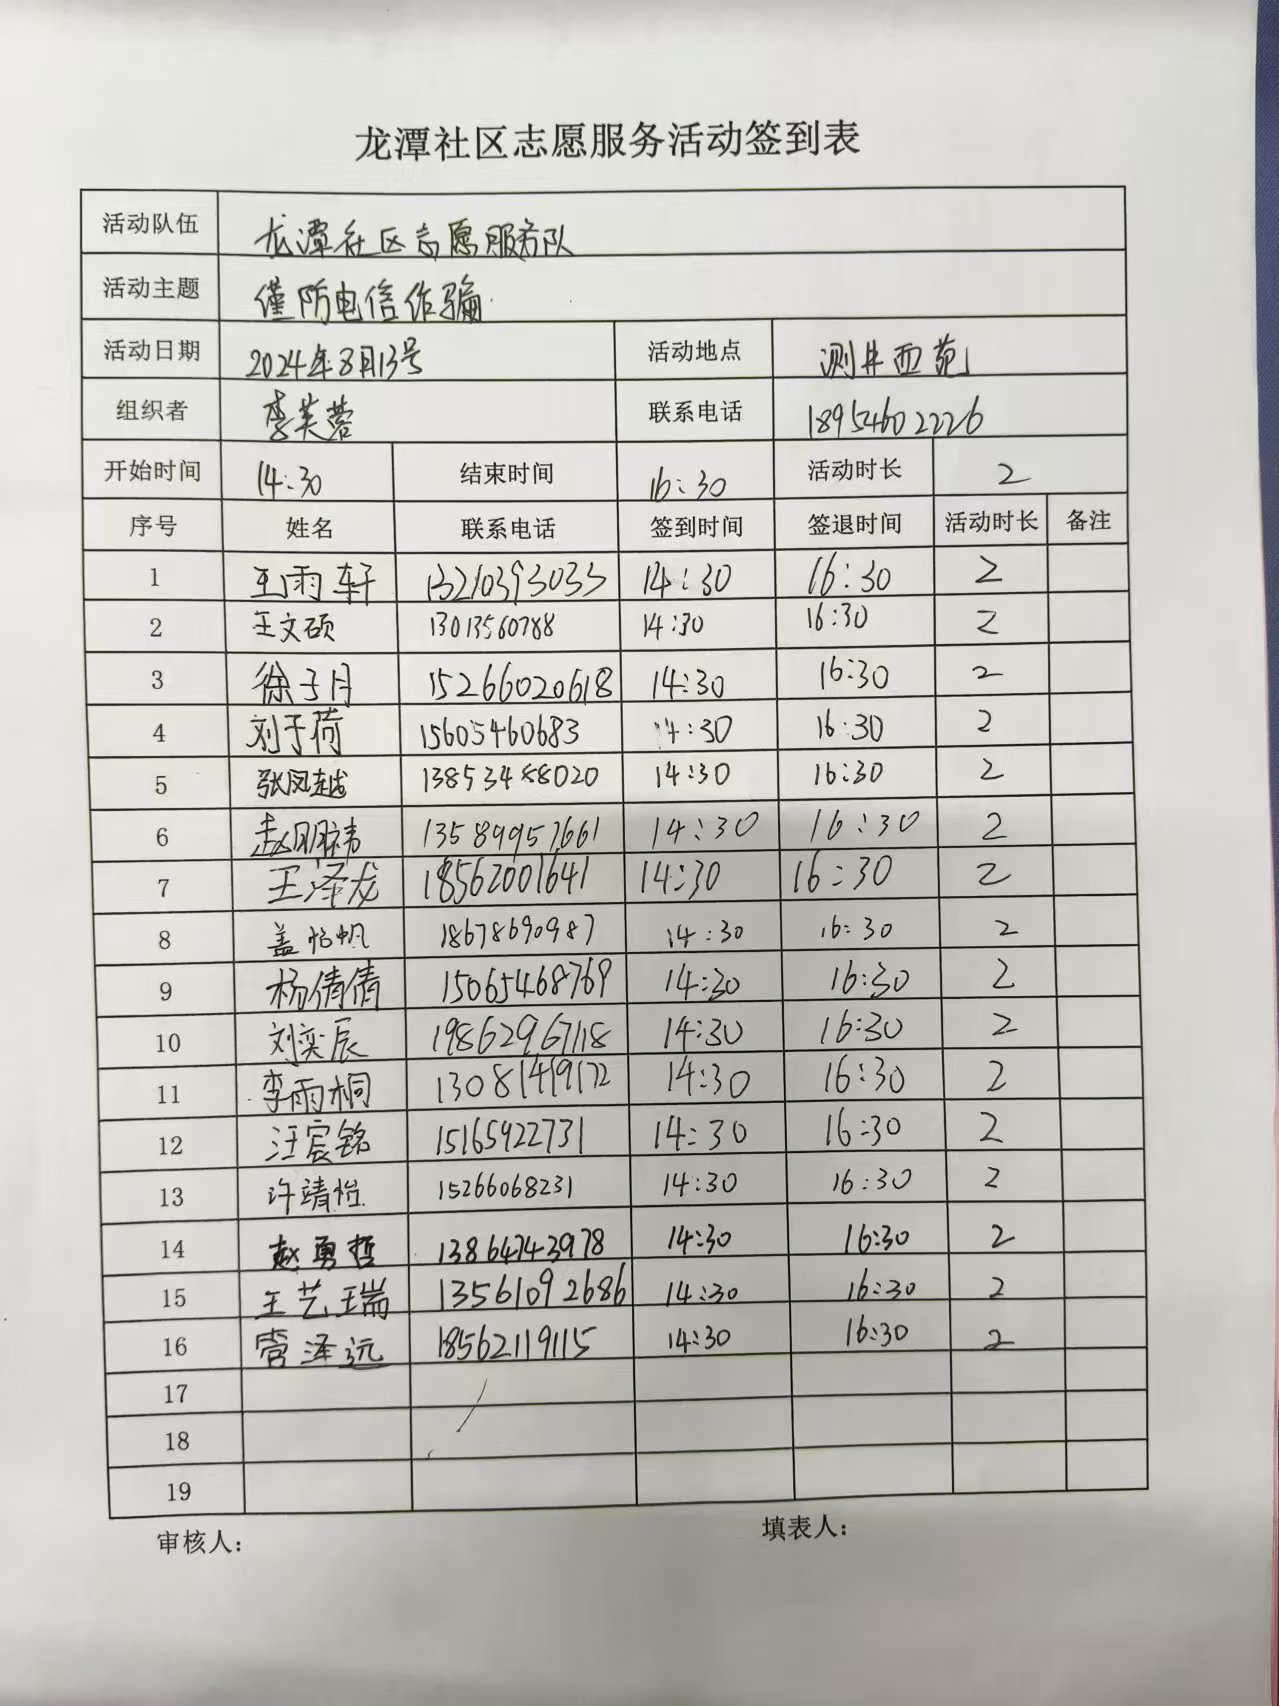 龙潭社区志愿服务活动签到表
活动队伍 龙潭社区志愿服务队
活动主题 谨防电信诈骗
活动日期 2024年8月13号 活动地点 测井西苑
组织者 李芙蓉 联系电话 18954602226
开始时间 14:30 结束时间 16:30 活动时长 2
序号 姓名 联系电话 签到时间 签退时间 活动时长 备注
1 王雨轩 13210393033 14:30 16:30 2
2 王文硕 13013560788 14:30 16:30 2
3 徐子月 15266020618 14:30 16:30 2
4 刘于荷 15605460683 14:30 16:30 2
5 张凤越 13853488020 14:30 16:30 2
6 赵明祎 13589957661 14:30 16:30 2
7 王泽龙 18562001641 14:30 16:30 2
8 盖怡帆 18678690987 14:30 16:30 2
9 杨倩倩 15065468769 14:30 16:30 2
10 刘奕辰 19862967118 14:30 16:30 2
11 李雨桐 13081419172 14:30 16:30 2
12 汪宸铭 15165922731 14:30 16:30 2
13 许靖怡 15266068231 14:30 16:30 2
14 赵勇哲 13864743978 14:30 16:30 2
15 王艺瑞 13561092686 14:30 16:30 2
16 管泽远 18562119115 14:30 16:30 2
17
18
19
审核人： 填表人：